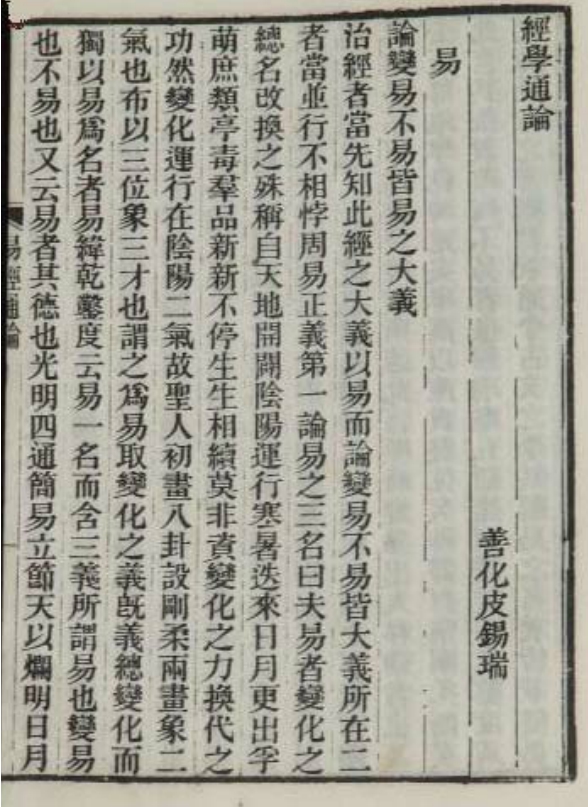 經學通論
善化皮錫瑞
易
論變易不易皆易之大義
治經者當先知此經之大義以易而論變易不易皆大義所在二
者當並行不相悖周易正義第一論易之三名曰夫易者變化之
總名改換之殊稱自天地開闢陰陽運行寒暑迭來日月更出孚
萌庶類亭毒羣品新新不停生生相續莫非資變化之力換代之
功然變化運行在陰陽二氣故聖人初畫八卦設剛柔兩畫象二
氣也布以三位象三才也謂之爲易取變化之義旣義總變化而
獨以易爲名者易緯乾鑿度云易一名而含三義所謂易也變易
也不易也又云易者其德也光明四通簡易立節天以爛明日月
易經通論